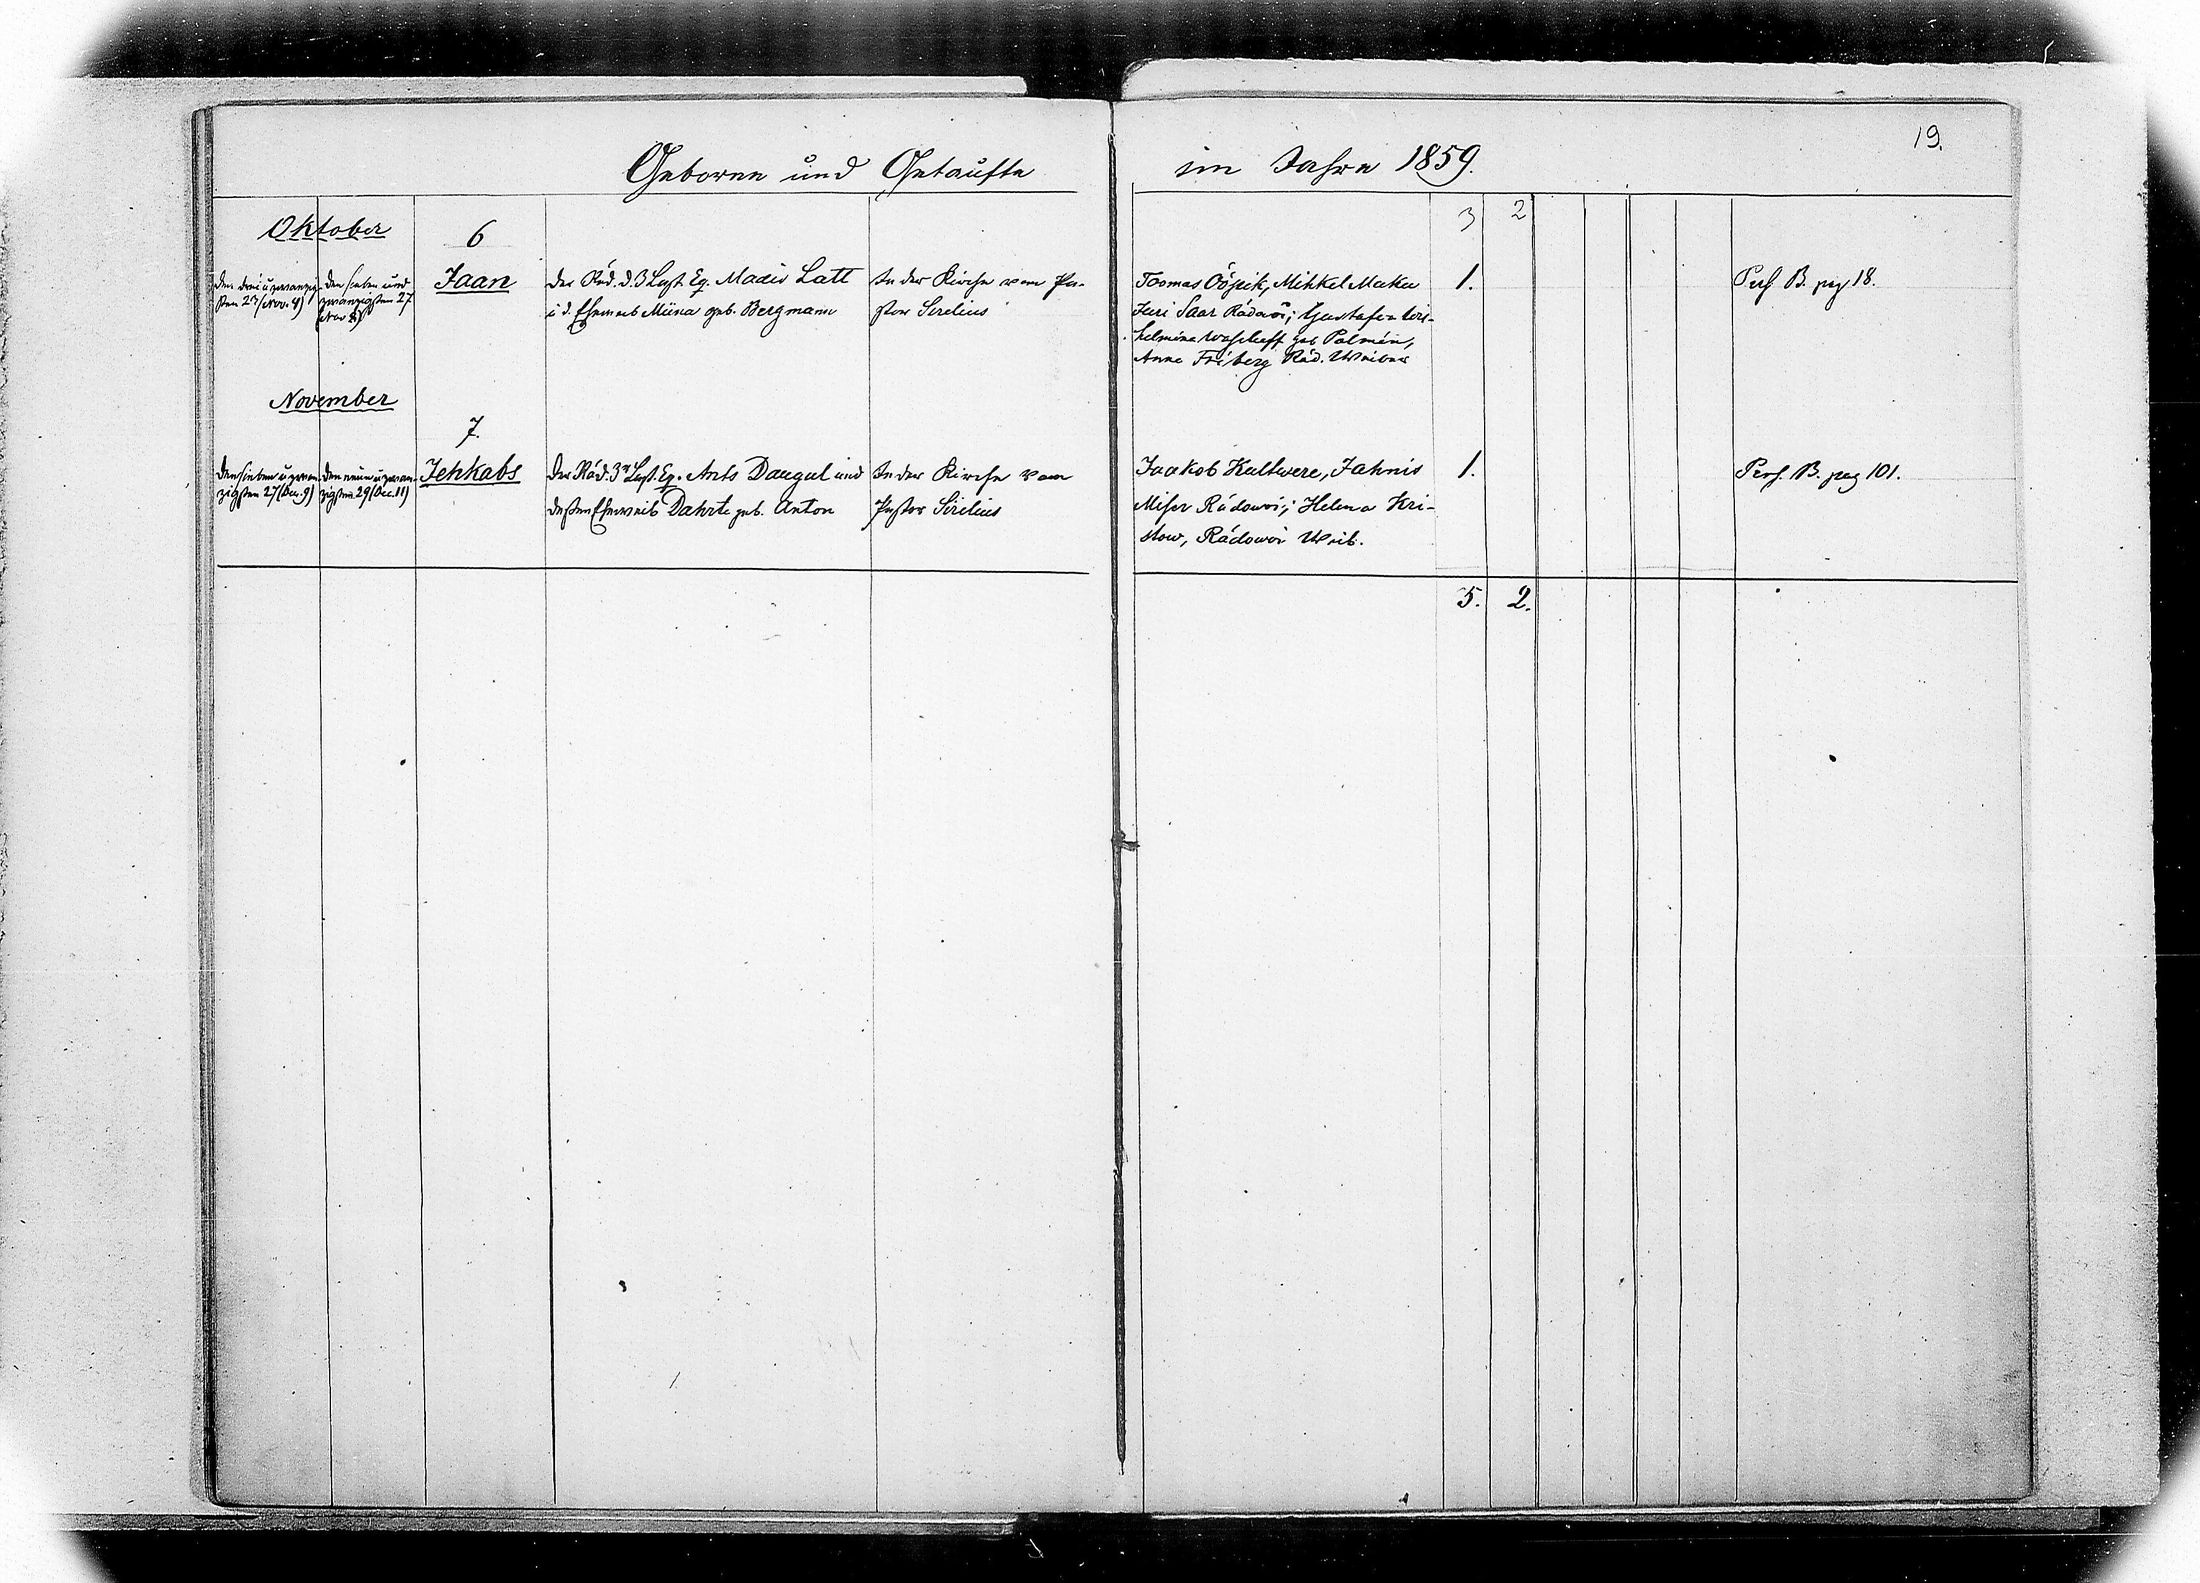 19.
Geborene und Getaufte im Jahre 1859.
3 2
Oktober
6
den drei u zwanzig-
sten 23 (Nov. 4)
den sieben und
zwanzigsten 27
(Nov 8)
Jaan
Der Räd. d. 3 Last Eq. Madis Latt
u d. Eheweib Miina geb. Bergmann
In der Kirche vom Pa-
stor Sirelius
Toomas Ööpik, Mihkel Maku
Juri Saar Rädowoi; Gustafva Wil-
helmina geb Palmén,
Anna Friberg Räd. Weiber
1.
Pers B. pag 18.
November
7.
den sieben u zwan-
zigsten 27 (Dec. 9)
den neun u zwan-
zigsten 29 (Dec. 11)
Jehkabs
Der Räd. 3r Last. Eq. Ants Daugul und
dessen Eheweib Dahrte geb. Anton
In der Kirche vom
Pastor Sirelius
Jaakob Kaltwere, Jahnis
Miser Rädowoi; Helena Kri-
stow, Rädowoi Weib.
1.
Pers. B. pag 101.
5. 2.